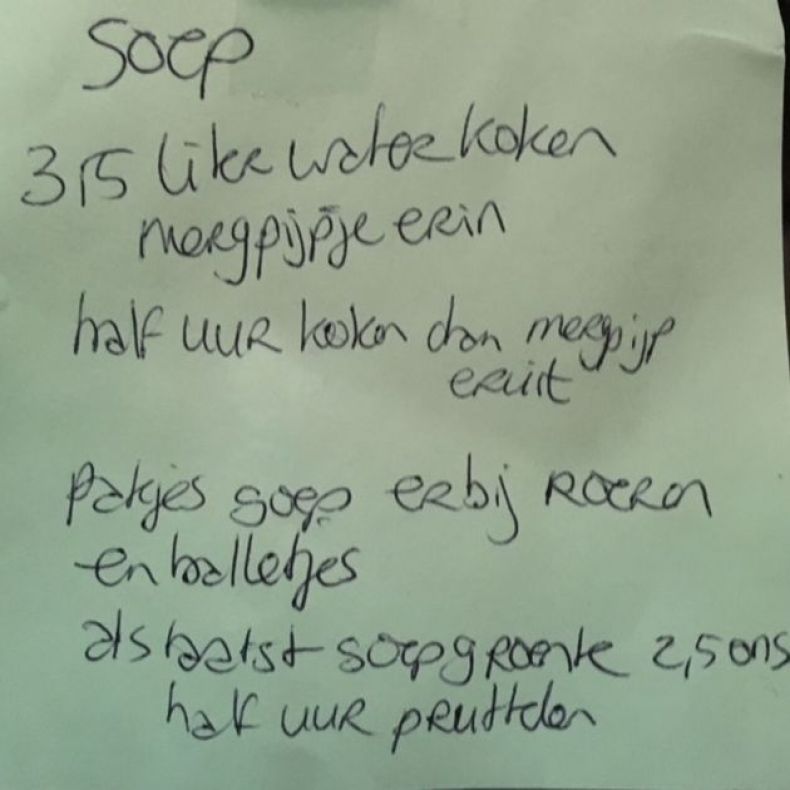 Soep
3,5 liter water koken
mergpijpje erin
half uur koken dan mergpijp
eruit
pakjes soep erbij roeren
en balletjes
als laatst soepgroente 2,5 ons
half uur pruttelen